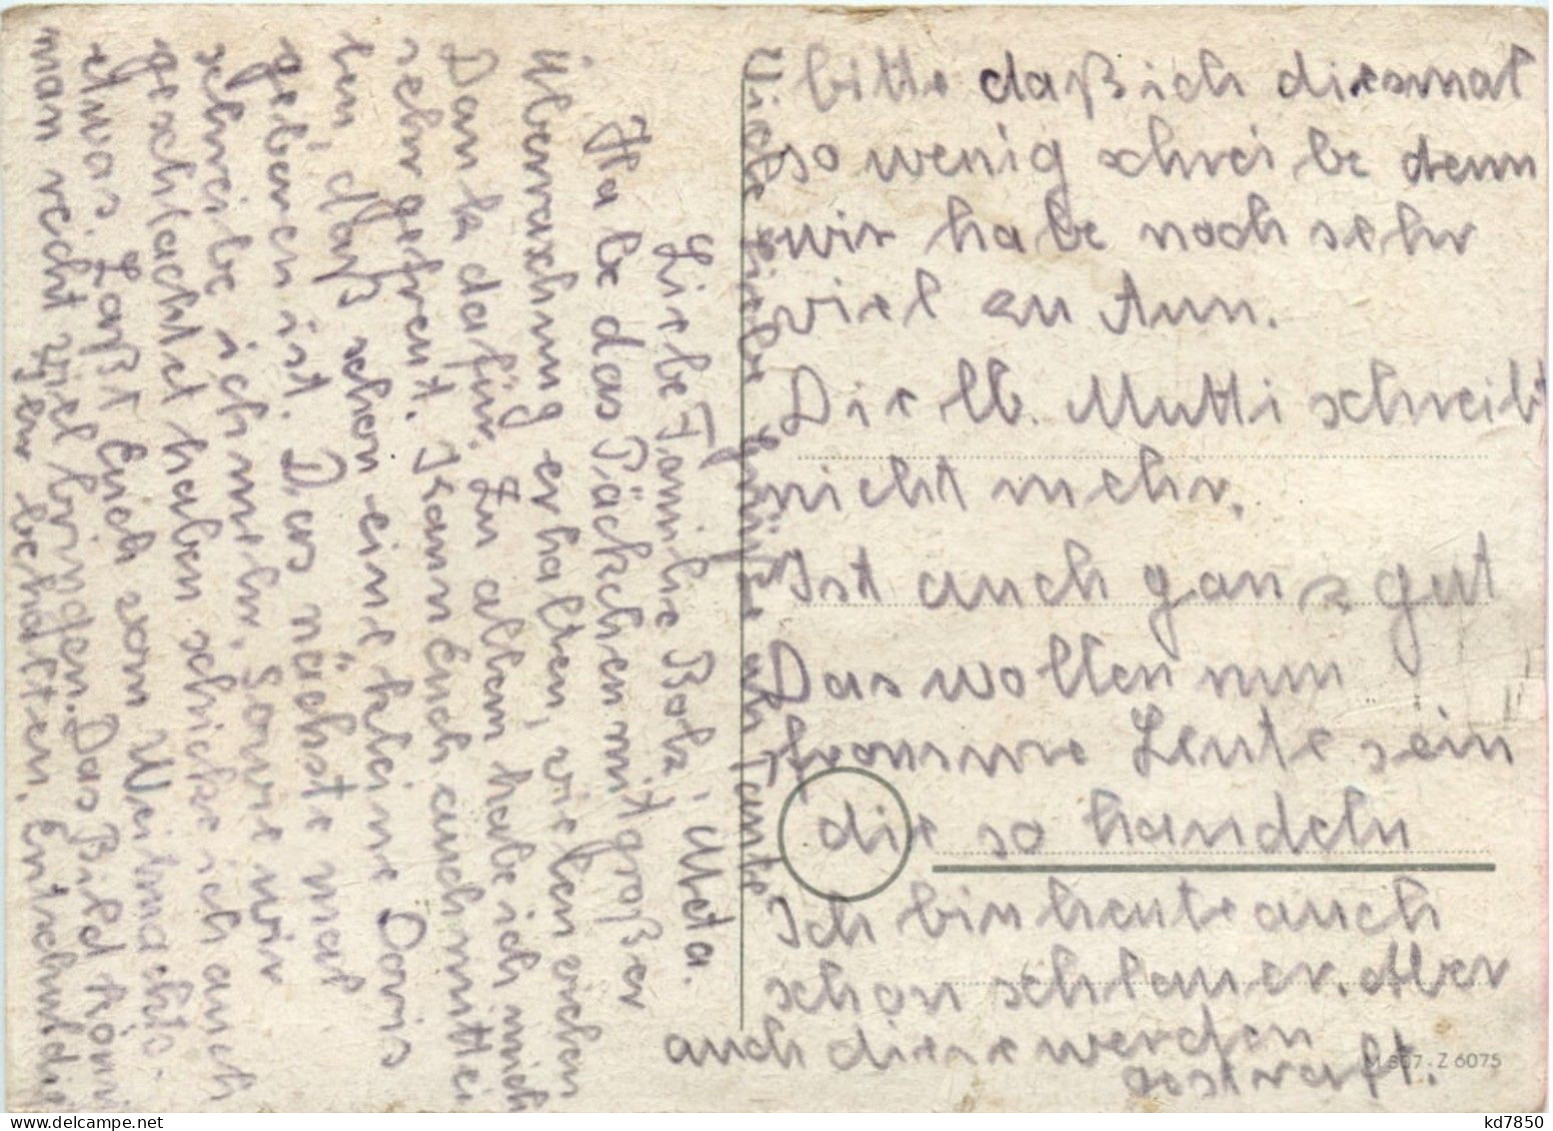 Liebe Familie Bok, Meta.
Habe das Päckchen mit großer
Überraschung erhalten, vielen vielen
Dank dafür. Zu allem habe ich mich
sehr gefreut. Kann Euch auch mittei
len, daß schon eine kleine Doris
geboren ist. Das nächste mal
schreibe ich mehr. Sowie wir
geschlachtet haben schicke ich auch
etwas. Laßt Euch vom Weihnachts-
man recht viel bringen. Das Bild könnt
Ihr gern behalten. Entschuldig
bitte daß ich diesmal
so wenig schreibe denn
wir habe noch sehr
viel zu tun.
Die lb. Mutti schreibt
nicht mehr.
Ist auch ganz gut
Das wollen nun
fromme Leute sein
die so handeln
Ich bin heute auch
schon schlauer. Aber
auch diese werden
gestraft.
Viele liebe Grüße an Tante
M 307 · Z 6075
kd7850